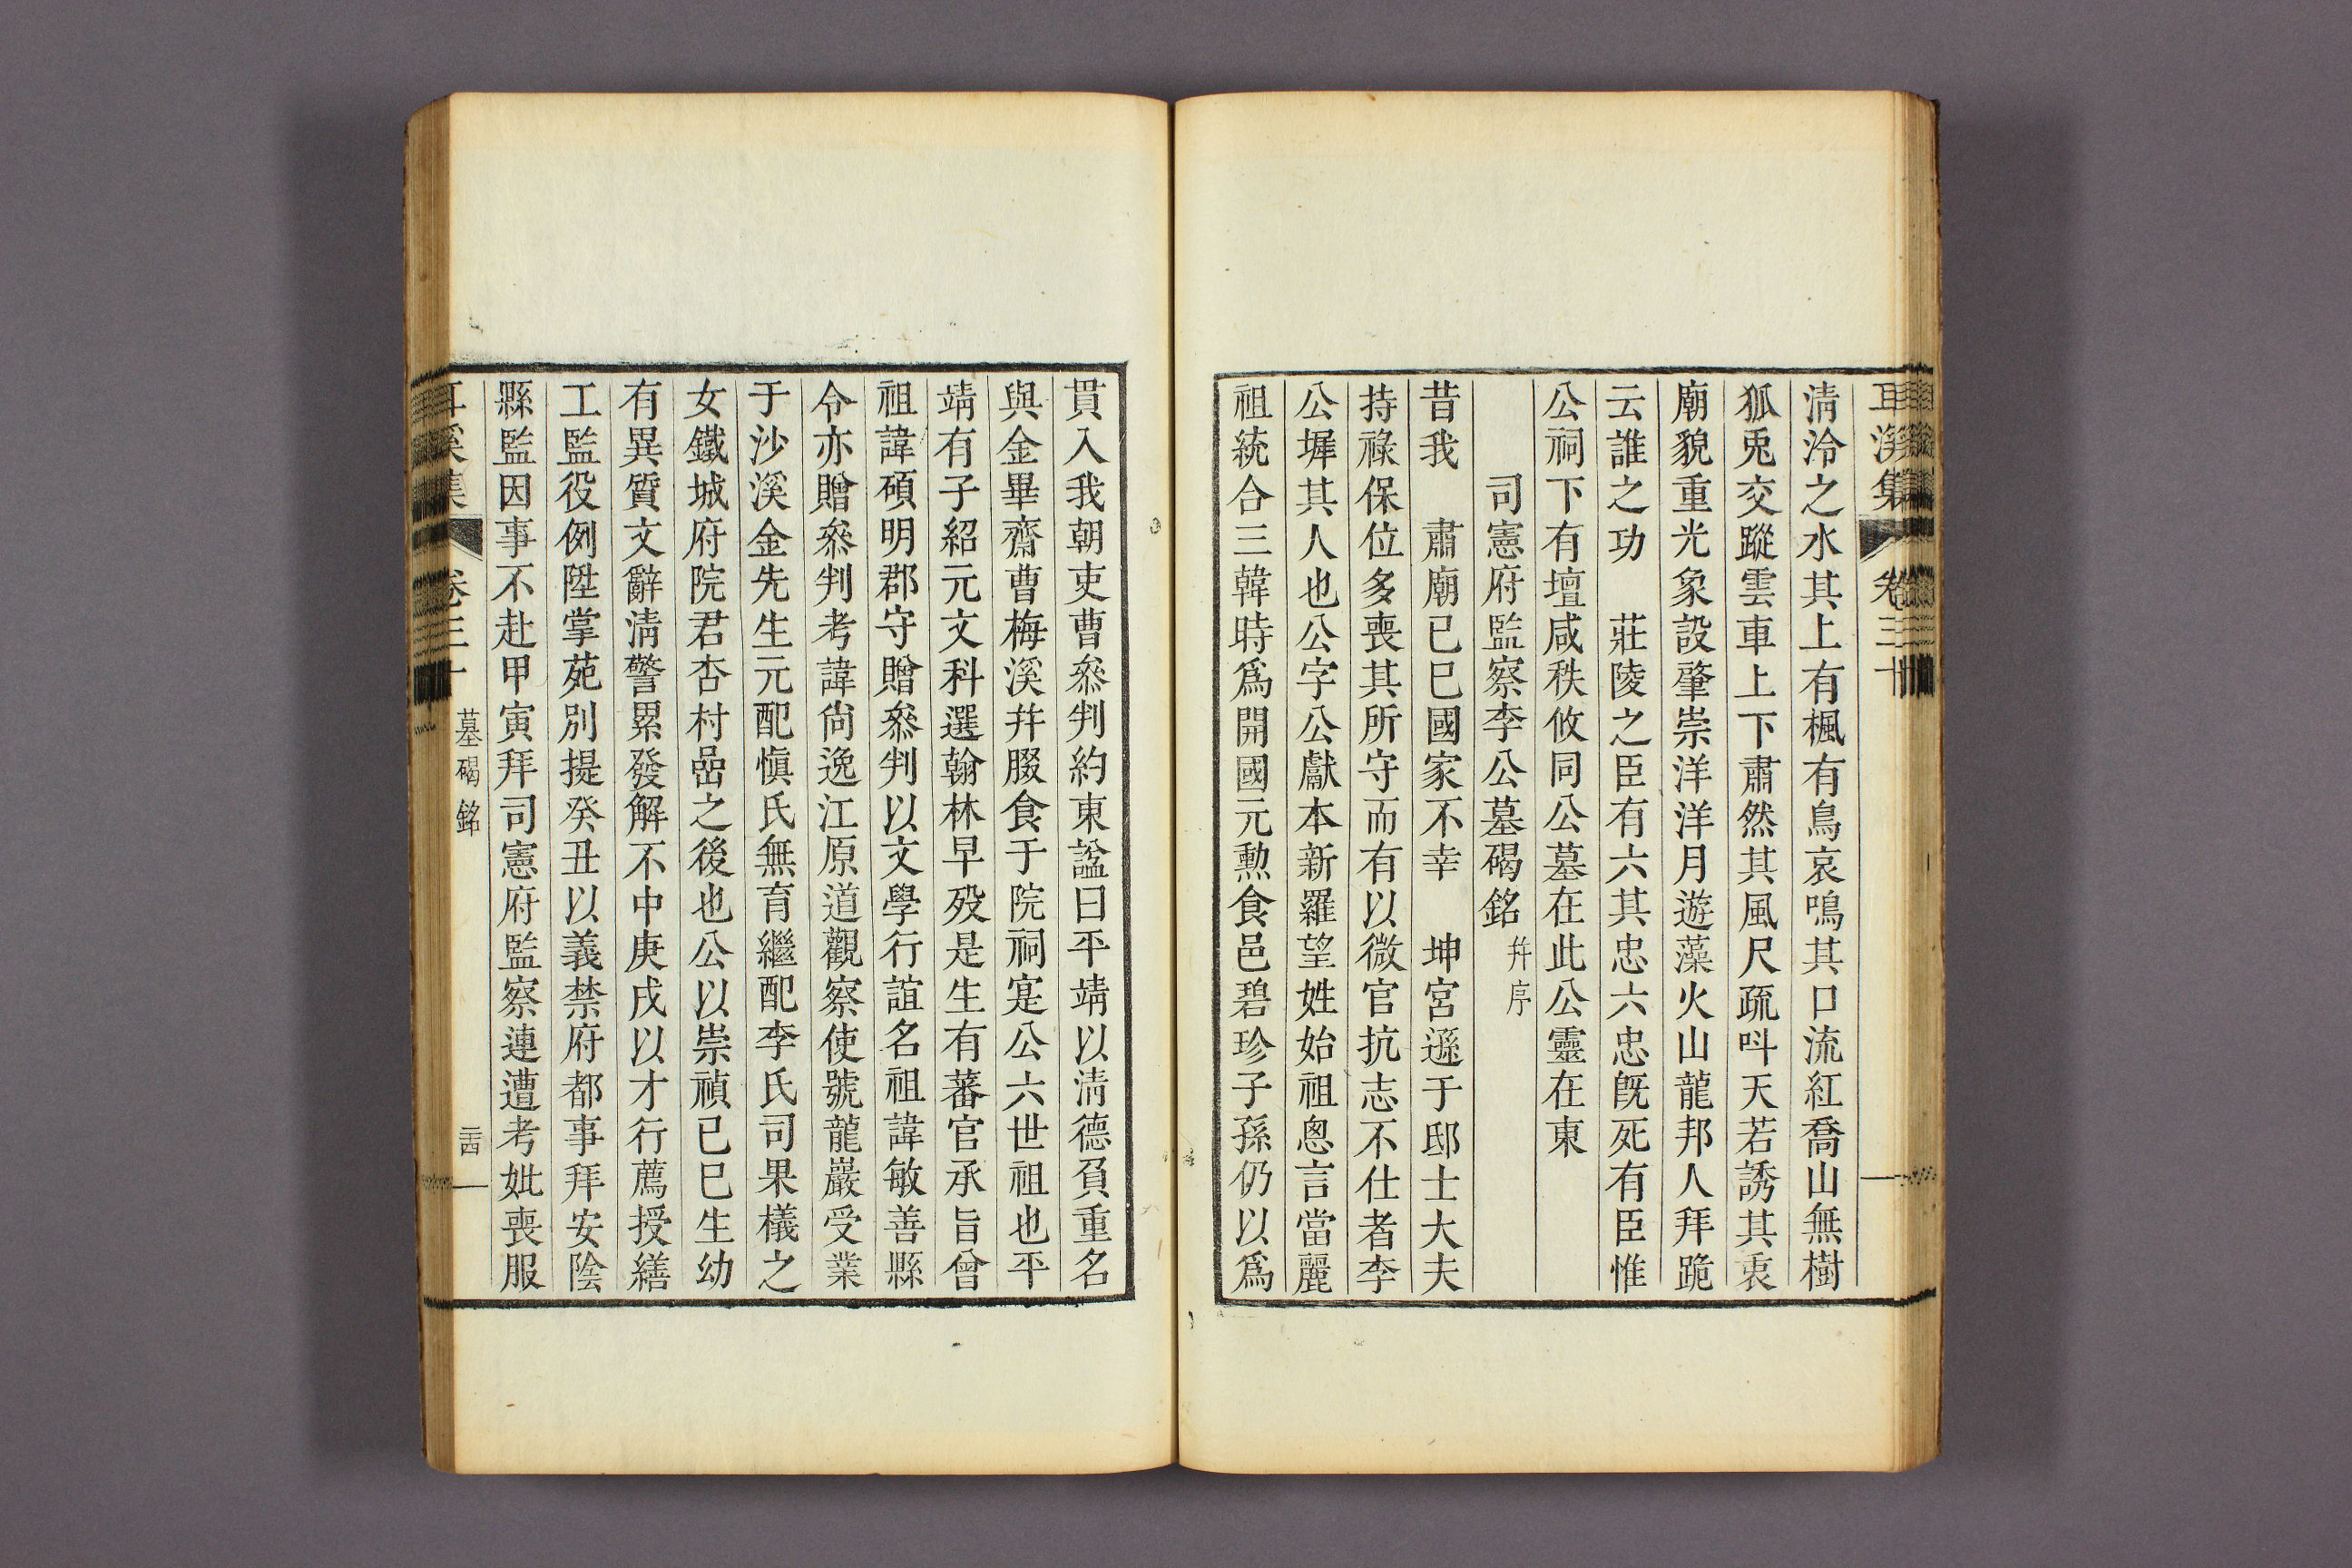 耳溪集 卷三十
清泠之水其上有楓有鳥哀鳴其口流紅喬山無樹
狐兎交蹤雲車上下肅然其風尺疏呌天若誘其衷
廟貌重光象設肇崇洋洋月遊藻火山龍邦人拜跪
云誰之功 莊陵之臣有六其忠六忠旣死有臣惟
公祠下有壇咸秩攸同公墓在此公靈在東
司憲府監察李公墓碣銘 幷序
昔我 肅廟己巳國家不幸 坤宮遜于邸士大夫
持祿保位多喪其所守而有以微官抗志不仕者李
公墀其人也公字公獻本新羅望姓始祖悤言當麗
祖統合三韓時爲開國元勲食邑碧珍子孫仍以爲
貫入我朝吏曹叅判約東諡曰平靖以淸德負重名
與金畢齋曹梅溪幷腏食于院祠寔公六世祖也平
靖有子紹元文科選翰林早歿是生有蕃官承旨曾
祖諱碩明郡守贈叅判以文學行誼名祖諱敏善縣
令亦贈叅判考諱尙逸江原道觀察使號龍巖受業
于沙溪金先生元配愼氏無育繼配李氏司果檥之
女鐵城府院君杏村嵒之後也公以崇禎己巳生幼
有異質文辭淸警累發解不中庚戌以才行薦授繕
工監役例陞掌苑別提癸丑以義禁府都事拜安陰
縣監因事不赴甲寅拜司憲府監察連遭考妣喪服
耳溪集 卷三十 墓碣銘 二四